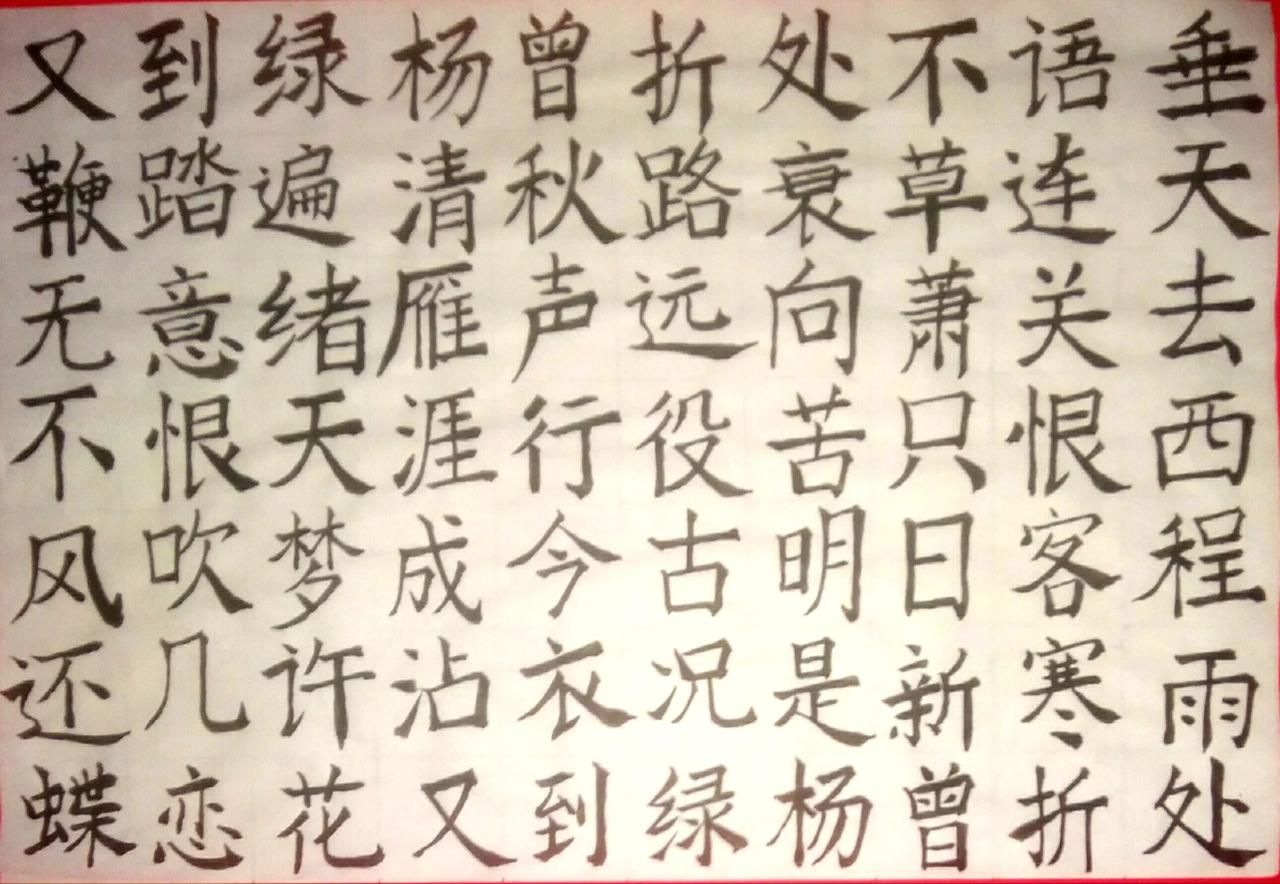 又到绿杨曾折处不语垂
鞭踏遍清秋路衰草连天
无意绪雁声远向萧关去
不恨天涯行役苦只恨西
风吹梦成今古明日客程
还几许沾衣况是新寒雨
蝶恋花又到绿杨曾折处